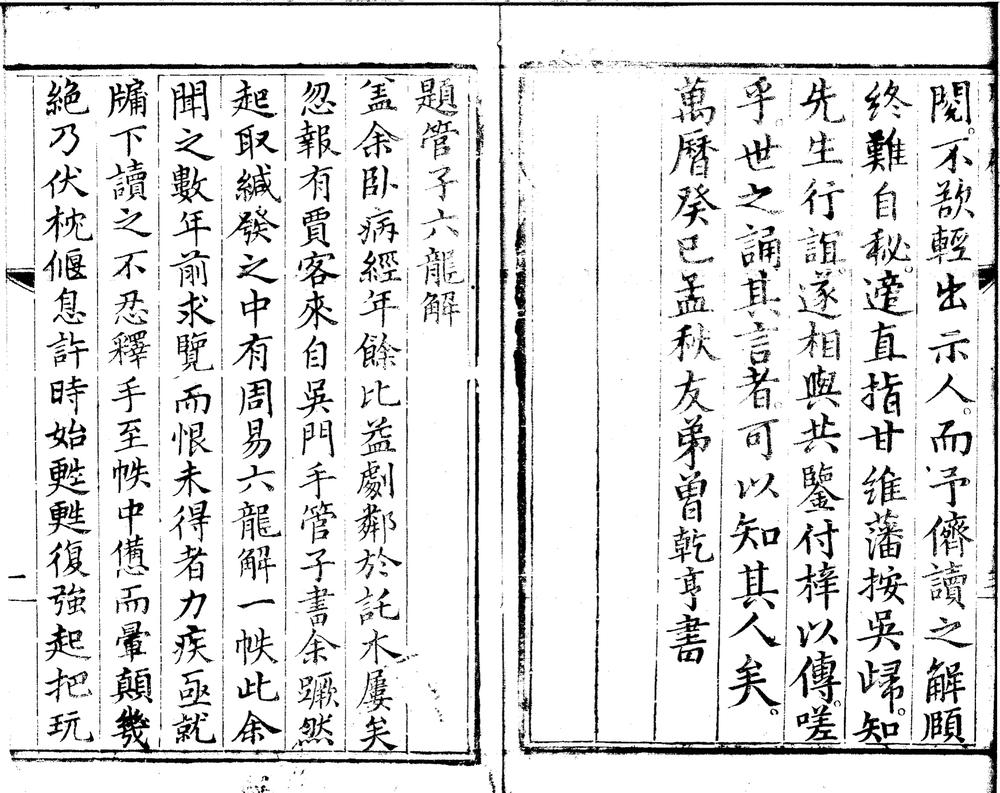 閱。不欲輕出示人。而予儕讀之解頤
終難自秘。適直指甘維藩按吳歸。知
先生行誼。遂相與共鑒付梓以傳。嗟
乎。世之誦其言者。可以知其人矣。
萬曆癸巳孟秋友弟曾乾亨書
題管子六龍解
盖余卧病經年餘比益劇鄰於託木屢矣
忽報有賈客來自吳門手管子書余蹶然
起取緘發之中有周易六龍解一帙此余
聞之數年前求覽而恨未得者力疾亟就
牖下讀之不忍釋手至帙中憊而暈顛幾
絶乃伏枕偃息許時始甦甦復強起把玩
二